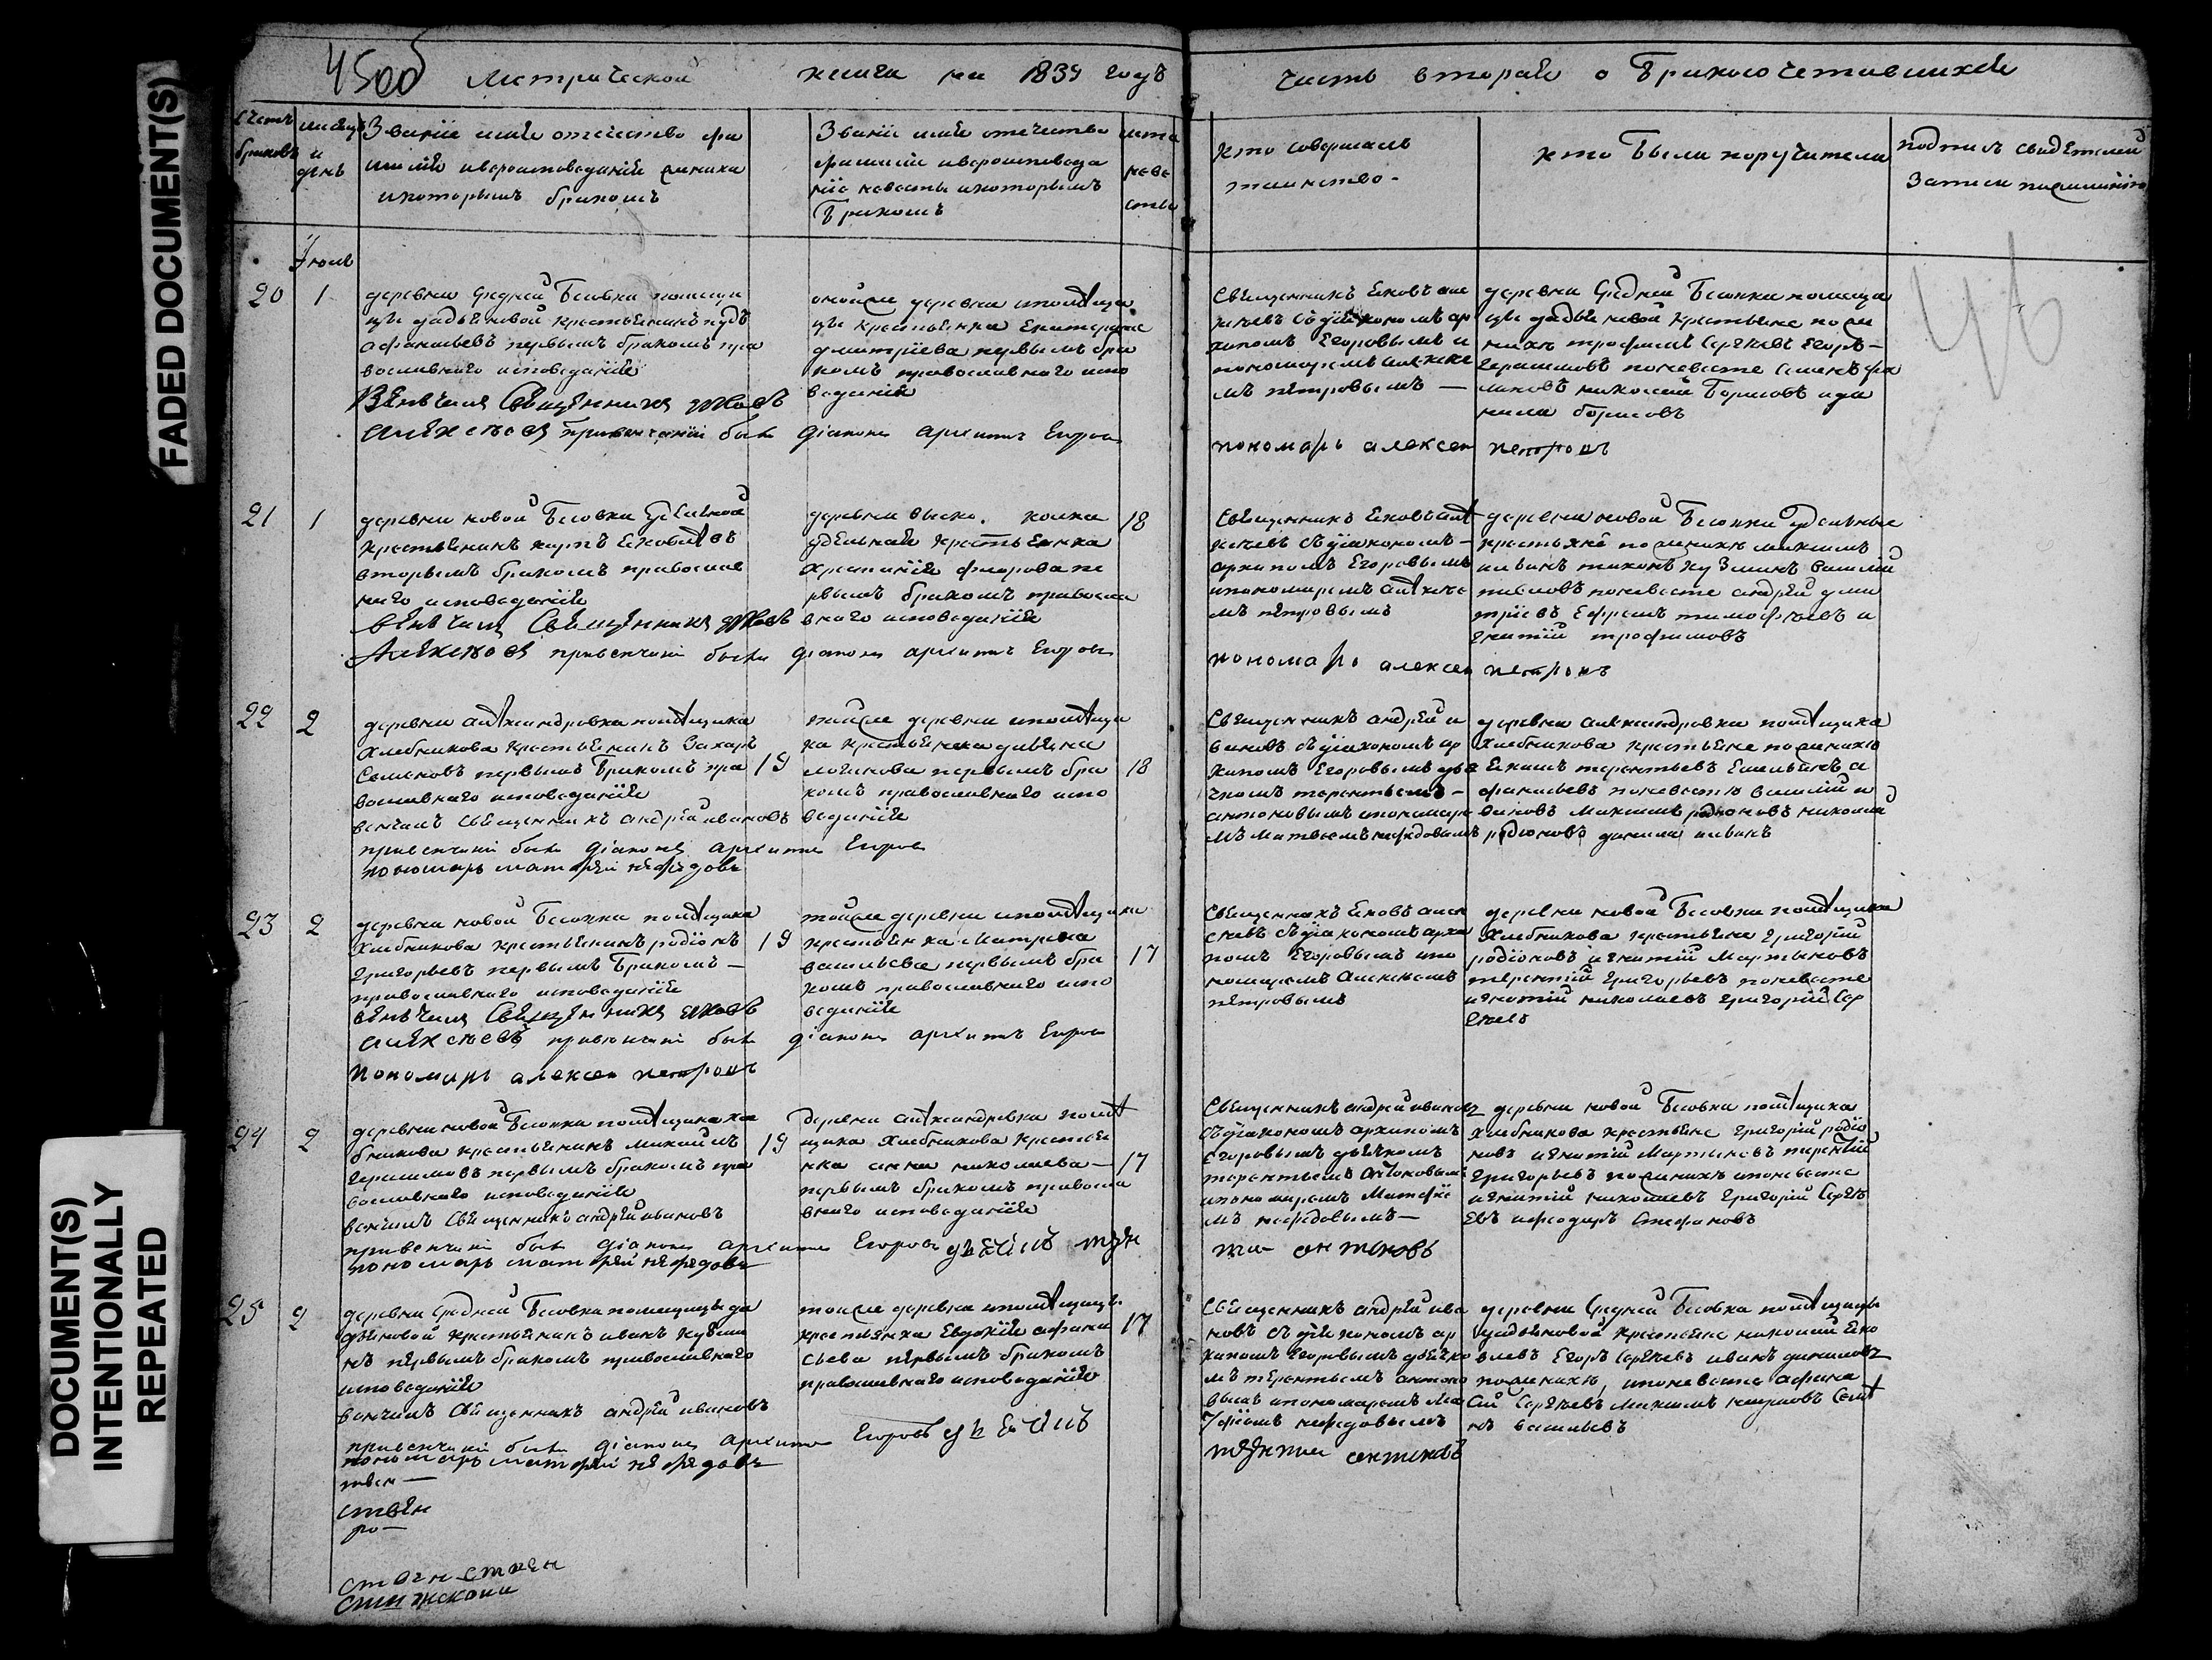 FADED DOCUMENT(S)
DOCUMENT(S)
INTENTIONALLY
REPEATED
45об
Метрической книги на 1839 годъ
часть вторая о бракосочетавшихся
счетъ браковъ
месяцъ и день
Званiе имя отчество фа
милiя и вероисповеданiе жениха
и которымъ бракомъ
Званiе имя отечество
фамилiя и вероисповеда
нiе невесты и которымъ
бракомъ
лета
неве
сты
кто совершалъ
таинство
кто были поручители
подпись свидетелей
записи по желанiю
46
Iюль
20 1
деревни Средней Бесовки помещи
цы Фадѣевой крестьянинъ
Афанасьевъ первымъ бракомъ пра
вославнаго исповеданiя
Вѣнчалъ Священникъ Яковъ
Алексѣевъ при венчанiи былъ дiаконъ Архипъ Егоровъ
оной же деревни и помѣщи
цы крестьянка Екатерина
Дмитрiева первымъ бра
комъ православнаго испо
веданiя
Священникъ Яковъ Але
ксѣевъ съ дiякономъ Ар
хипомъ Егоровымъ и
пономаремъ Алексее
мъ Петровымъ
пономарь Алексей Петровъ
деревни Средней Бесовки помещи
цы Фадѣевой крестьяне по же
нихе Трофимъ Сергѣевъ Егоръ
Герасимовъ по невесте Семенъ Фи
Николай Борисовъ и Да
нила Борисовъ
21 1
деревни новой Бесовки удѣльной
крестьянинъ Карпъ Яковлевъ
вторымъ бракомъ православ
наго исповеданiя
вѣнчалъ Священникъ Яковъ
Алексѣевъ при венчанiи былъ дiаконъ Архипъ Егоровъ
деревни
удѣльная крестьянка
Федорова пе
рвымъ бракомъ правосла
внаго исповеданiя
18
Священникъ Яковъ Але
ксѣевъ съ дiякономъ
Архипомъ Егоровымъ
и пономаремъ Алексее
мъ Петровымъ
пономарь Алексей Петровъ
деревни новой Бесовки удѣльные
крестьяне по женихе Максимъ
Тихонъ Кузминъ Василiй
по невесте Андрей Дми
трiевъ Ефремъ Тимофѣевъ и
Игнатiй Трофимовъ
22 2
деревни Александровки помѣщика
Хлебникова крестьянинъ Захаръ
Семеновъ первымъ бракомъ пра
вославнаго исповеданiя
венчалъ Священникъ Андрей Ивановъ
при венчанiи былъ дiаконъ Архипъ Егоровъ
пономарь Матфей Нефедовъ
19
той же деревни и помѣщи
ка крестьянска дѣвица
первымъ бра
комъ православнаго испо
веданiя
18
Священникъ Андрей И
вановъ съ дiякономъ Ар
хипомъ Егоровымъ дья
чкомъ Терентьемъ
Антоновымъ и пономаре
мъ Матвеемъ Нефедовымъ
деревни Александровки помѣщика
Хлебникова крестьяне по женихе
Терентьевъ Емельянъ А
фанасьевъ по невесте Василiй И
вановъ Максимъ Родионовъ Николай
Родионовъ Данила Ивановъ
23 2
деревни новой Бесовки помѣщика
Хлебникова крестьянинъ Родiонъ
Григорьевъ первымъ бракомъ
православнаго исповеданiя
вѣнчалъ Священникъ Яковъ
Алексѣевъ при венчанiи былъ дiаконъ Архипъ Егоровъ
пономарь Алексей Петровъ
19
той же деревни и помѣщика
крестьянка Матрена
Васильева первымъ бра
комъ православнаго испо
веданiя
17
Священникъ Яковъ Але
ксѣевъ съ дiякономъ Архи
помъ Егоровымъ и по
номаремъ Алексеемъ
Петровымъ
деревни новой Бесовки помѣщика
Хлебникова крестьяне Григорiй
Родiоновъ Игнатiй Мартыновъ
Терентiй Григорьевъ по невесте
Игнатiй Николаевъ Григорiй Сер
гѣевъ
24 2
деревни новой Бесовки помѣщика Хле
бникова крестьянинъ Михаилъ
Герасимовъ первымъ бракомъ пра
вославнаго исповеданiя
венчалъ Священникъ Андрей Ивановъ
при венчанiи былъ дiаконъ Архипъ Егоровъ дьячокъ Терен
пономарь Матфей Нефедовъ
19
деревни Александровки помѣ
щика Хлебникова крестья
нка Анна Николаева
первымъ бракомъ правосла
внаго исповеданiя
17
Священникъ Андрей Ивановъ
съ дiякономъ Архипомъ
Егоровымъ дьячкомъ
Терентьемъ Антоновымъ
и пономаремъ Матфее
мъ Нефедовымъ
тiй Антоновъ
деревни новой Бесовки помѣщика
Хлебникова крестьяне Григорiй Родiо
новъ Игнатiй Мартыновъ Терентiй
Григорьевъ по женихе и по невесте
Игнатiй Николаевъ Григорiй Сергѣ
евъ и Федоръ Стефановъ
25 2
деревни Средней Бесовки помещицы Фа
дѣевой крестьянинъ Иванъ Кузми
нъ первымъ бракомъ православнаго
исповеданiя
венчалъ Священникъ Андрей Ивановъ
при венчанiи былъ дiаконъ Архипъ Егоровъ дьячокъ
пономарь Матфей Нефедовъ
той же деревни и помѣщицы
крестьянка Евдокiя Афана
сьева первымъ бракомъ
православнаго исповеданiя
17
Священникъ Андрей Ива
новъ съ дiякономъ Ар
хипомъ Егоровымъ дьячко
мъ Терентьемъ Антоно
вымъ и пономаремъ Ма
тфеемъ Нефедовымъ
Терентiй Антоновъ
деревни Средней Бесовки помѣщицы
Фадѣевой крестьяне Николай Яко
влевъ Егоръ Сергѣевъ Иванъ Даниловъ
по женихе, и по невесте Афана
сiй Сергѣевъ Максимъ Семе
нъ Васильевъ
ствен
ро